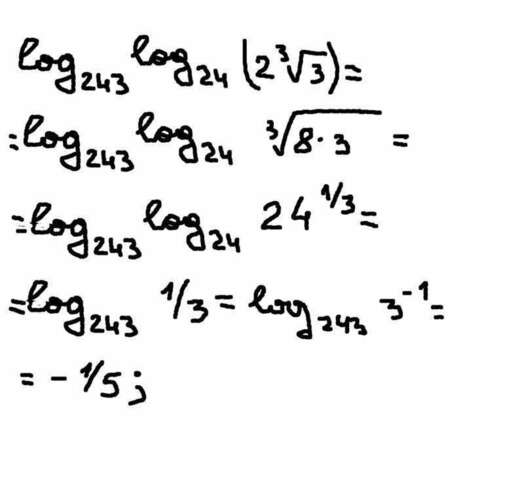 log₂₄₃ log₂₄ (2∛3) =
= log₂₄₃ log₂₄ ∛(8·3) =
= log₂₄₃ log₂₄ 24^1/3 =
= log₂₄₃ 1/3 = log₂₄₃ 3⁻¹ =
= - 1/5;